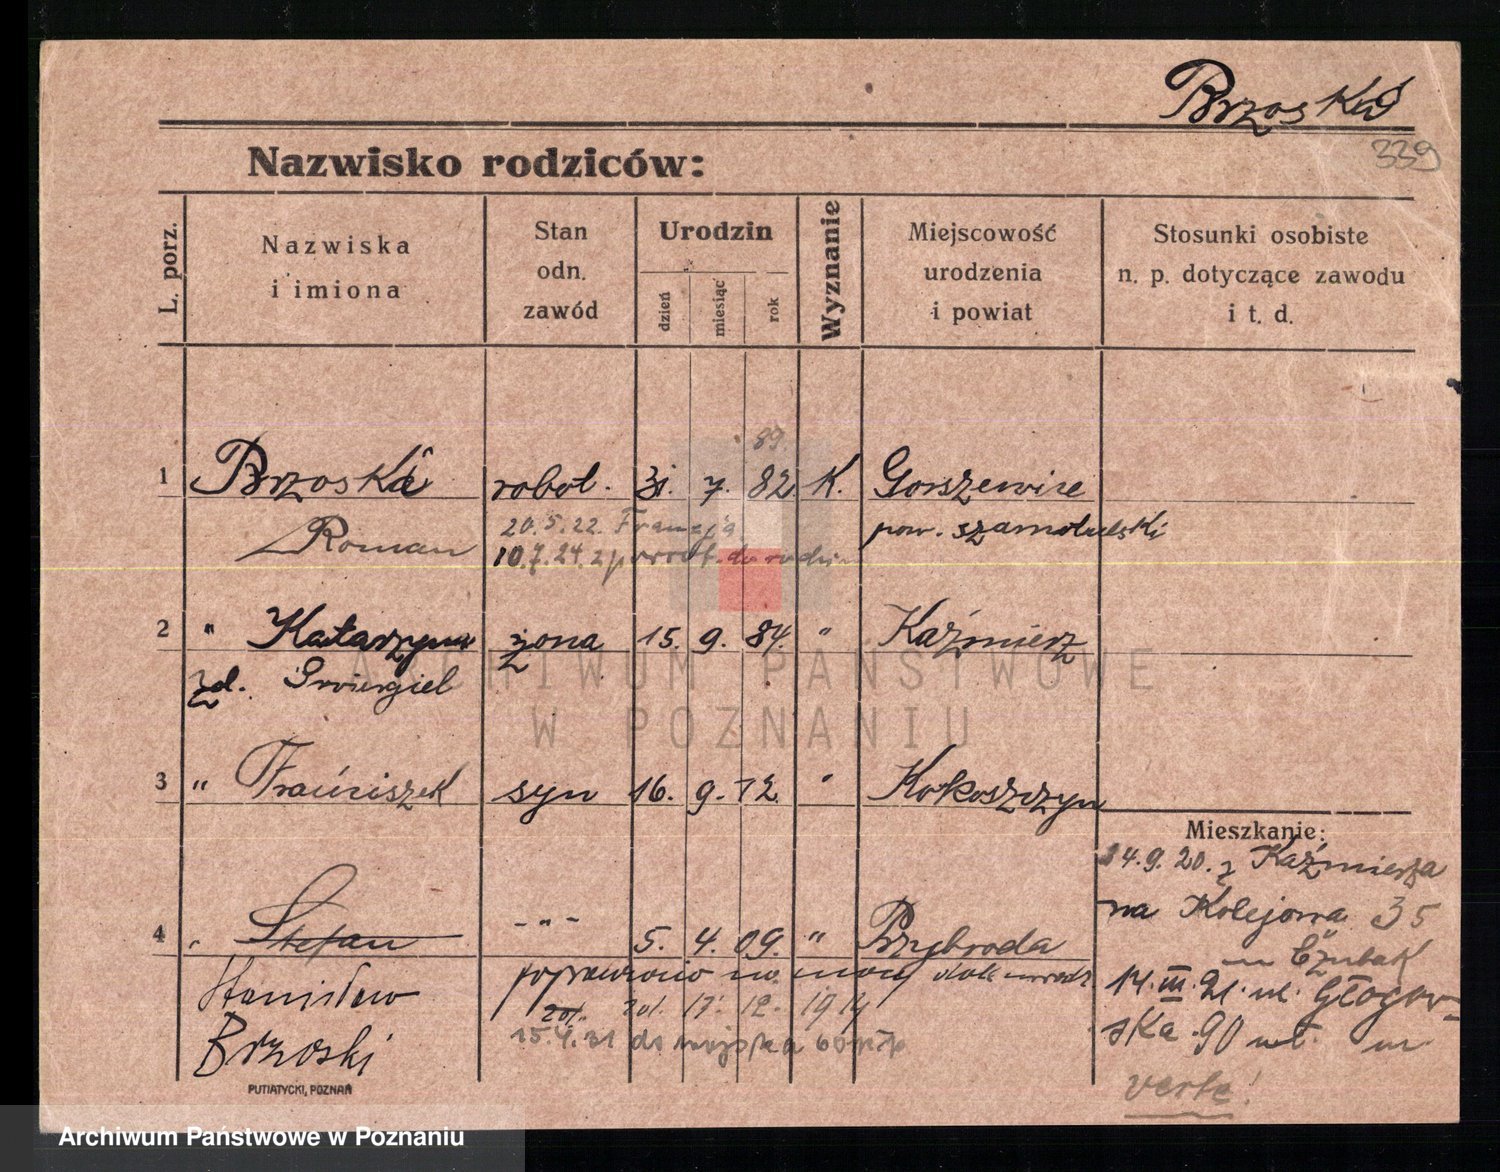 Brzoska
339
Nazwisko rodziców:
L. porz.
Nazwiska
i imiona
Stan
odn.
zawód
Urodzin
dzień
miesiąc
rok
Wyznanie
Miejscowość
urodzenia
i powiat
Stosunki osobiste
n. p. dotyczące zawodu
i t. d.
89.
1 Brzoska robot. 31. 7. 82 K. Gorszewice
Roman 20.5.22. Francja pow. szamotulski
10.7.24. z powrot. do rodzin
2 " Katarzyna żona 15. 9. 84. " Kaźmierz
zd. Śmiergiel
3 " Franciszek syn 16. 9. 12 " Kokoszczyn
4 Stefan - " - 5. 4. 09. " Przybroda
poprawiono na
Stanisław 17. 12. 19
Brzoski 15.4.31 do wojska
Mieszkanie:
14.9.20. z Kaźmierza
na Kolejowa 35
m
14.III.21. ul. Głogow-
ska 90
verte!
PUTIATYCKI, POZNAŃ
ARCHIWUM PAŃSTWOWE
W POZNANIU
Archiwum Państwowe w Poznaniu